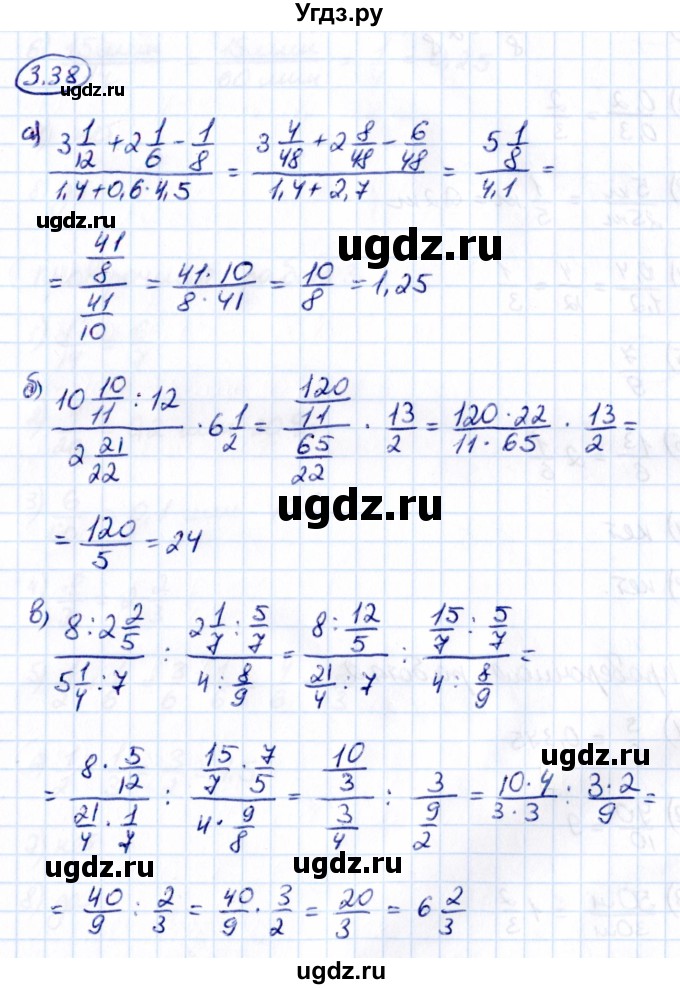 Угдз.ру
3.38
а) (3 1/12 + 2 1/6 - 1/8)/(1,4+0,6·4,5) = (3 4/48 + 2 8/48 - 6/48)/(1,4+2,7) = (5 1/8)/(4,1) =
ugdz.ru ugdz.ru
= (41/8)/(41/10) = (41·10)/(8·41) = 10/8 = 1,25
ugdz.ru
б) (10 10/11 : 12)/(2 21/22) · 6 1/2 = (120/11)/(65/22) · 13/2 = (120·22)/(11·65) · 13/2 =
ugdz.ru
= 120/5 = 24
ugdz.ru
в) (8 : 2 2/5)/(5 1/4 : 7) : (2 1/7 : 5/7)/(4 : 8/9) = (8 : 12/5)/(21/4 : 7) : (15/7 : 5/7)/(4 : 8/9) =
ugdz.ru
= (8 · 5/12)/(21/4 · 1/7) : (15/7 · 7/5)/(4 · 9/8) = (10/3)/(3/4) : 3/(9/2) = (10·4)/(3·3) : (3·2)/9 =
ugdz.ru ugdz.ru
= 40/9 : 2/3 = 40/9 · 3/2 = 20/3 = 6 2/3
ugdz.ru